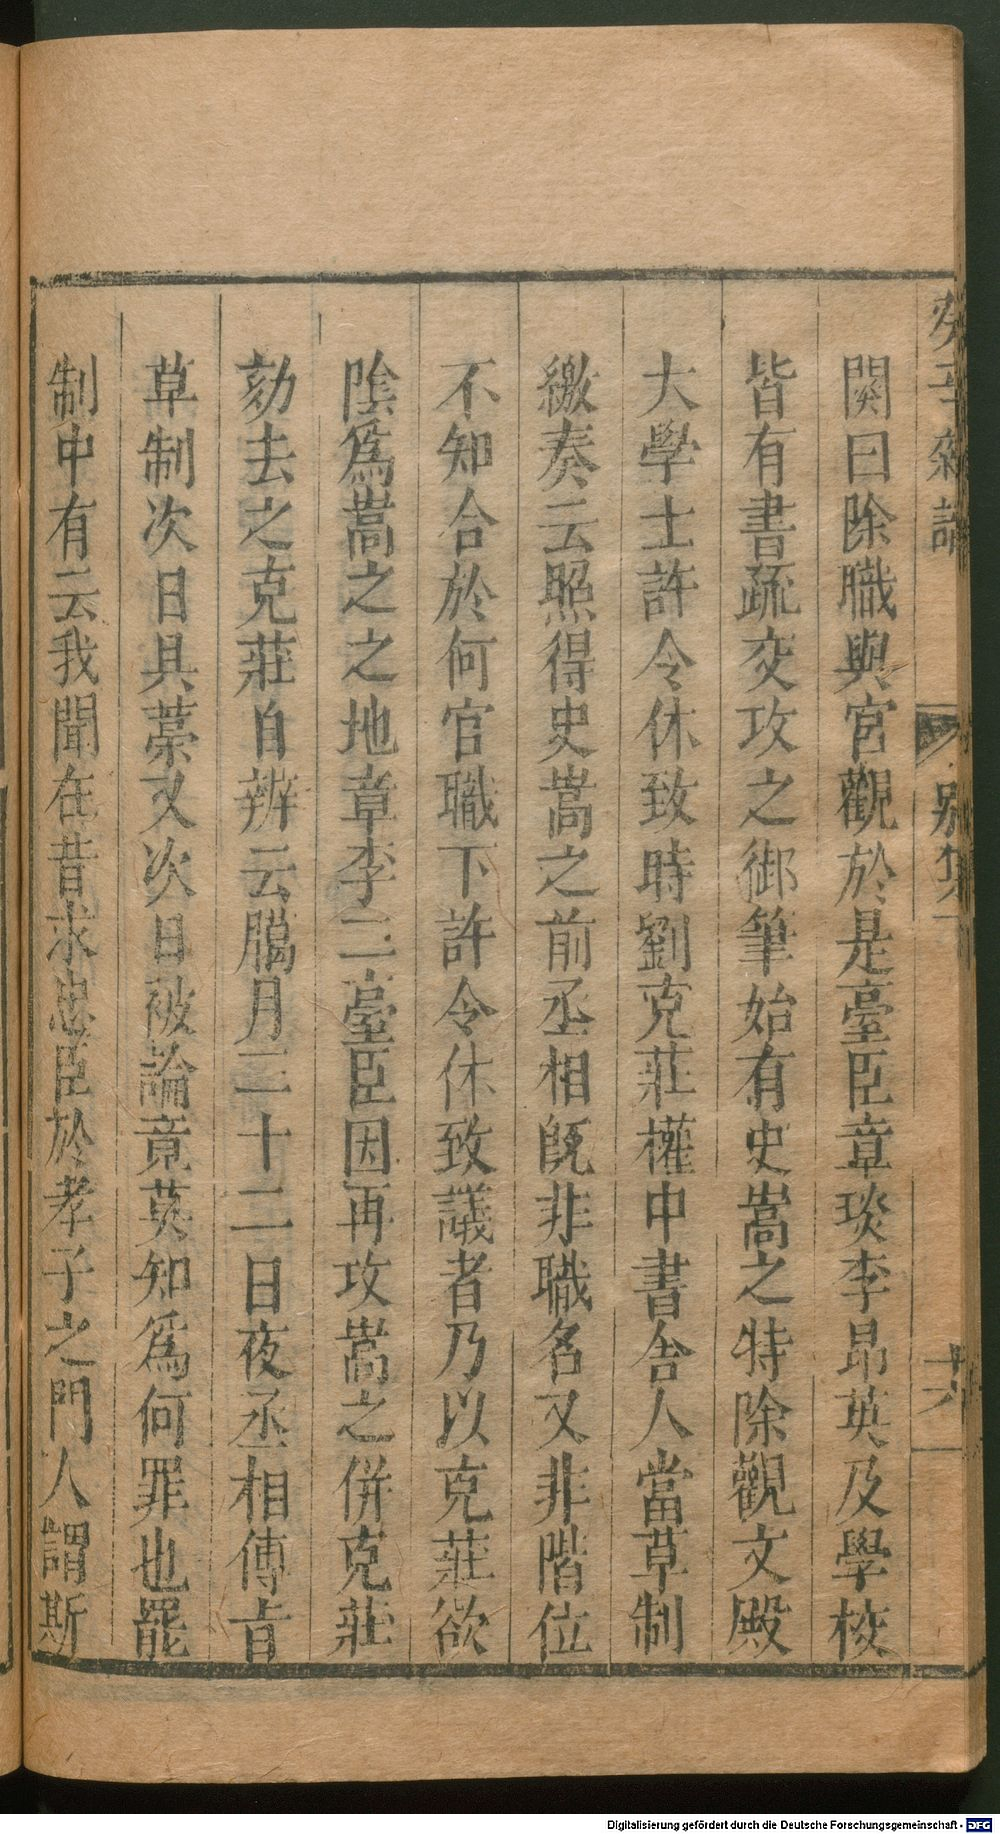 癸辛雜識
別集
十六
闕曰除職與宮觀於是臺臣章琰李昂英及學校
皆有書疏交攻之御筆始有史嵩之特除觀文殿
大學士許令休致時劉克莊權中書舎人當草制
繳奏云照得史嵩之前丞相旣非職名又非階位
不知合於何官職下許令休致議者乃以克莊欲
陰爲嵩之之地章李二臺臣因再攻嵩之併克莊
劾去之克莊自辨云臈月二十二日夜丞相傳㫖
草制次日具藁又次日被論竟莫知爲何罪也罷
制中有云我聞在昔求忠臣於孝子之門人謂斯
Digitalisierung gefördert durch die Deutsche Forschungsgemeinschaft - DFG